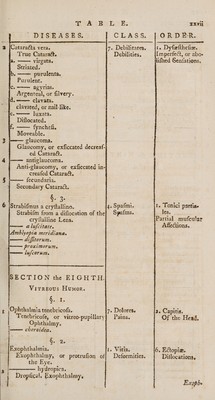 TABLE. xxvii
DISEASES. CLASS. ORDER.
2 Cataracta vera. 7. Debilitates. 1. Dysæsthesiæ.
True Cataract. Debilities. Imperfect, or abo-
a. —— virgata. lished Sensations.
Striated.
b. —— purulenta.
Purulent.
c. —— agyrias.
Argenteal, or silvery.
d. —— clavata.
clavated, or nail-like.
e. —— luxata.
Dislocated.
f. —— synchesis.
Moveable.
3 —— glaucoma.
Glaucomy, or exsiccated decreas-
ed Cataract.
4 —— antiglaucoma.
Anti-glaucomy, or exsiccated in-
creased Cataract.
5 —— secundaria.
Secondary Cataract.
§. 3.
6 Strabismus a crystallino. 4. Spasmi. 1. Tonici partia-
Strabism from a dislocation of the Spasms. les.
crystalline Lens. Partial muscular
—— a luscitate. Affections.
Amblyopia meridiana.
—— dissitorum.
—— proximorum.
—— luscorum.
SECTION the EIGHTH.
VITREOUS HUMOR.
§. 1.
1 Ophthalmia tenebricosa. 7. Dolores. 2. Capitis.
Tenebricose, or vitreo-pupillary Pains. Of the Head.
Ophthalmy.
—— choroidea.
§. 2.
1 Exophthalmia. 1. Vitia. 6. Ectopiæ.
Exophthalmy, or protrusion of Deformities. Dislocations.
the Eye.
a —— hydropica.
Dropsical Exophthalmy.
Exoph-